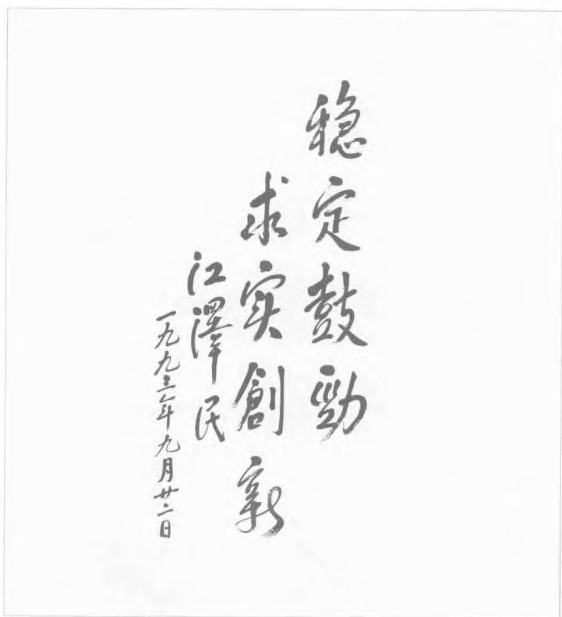 稳定鼓勁
求实創新
江澤民
一九九三年九月廿二日